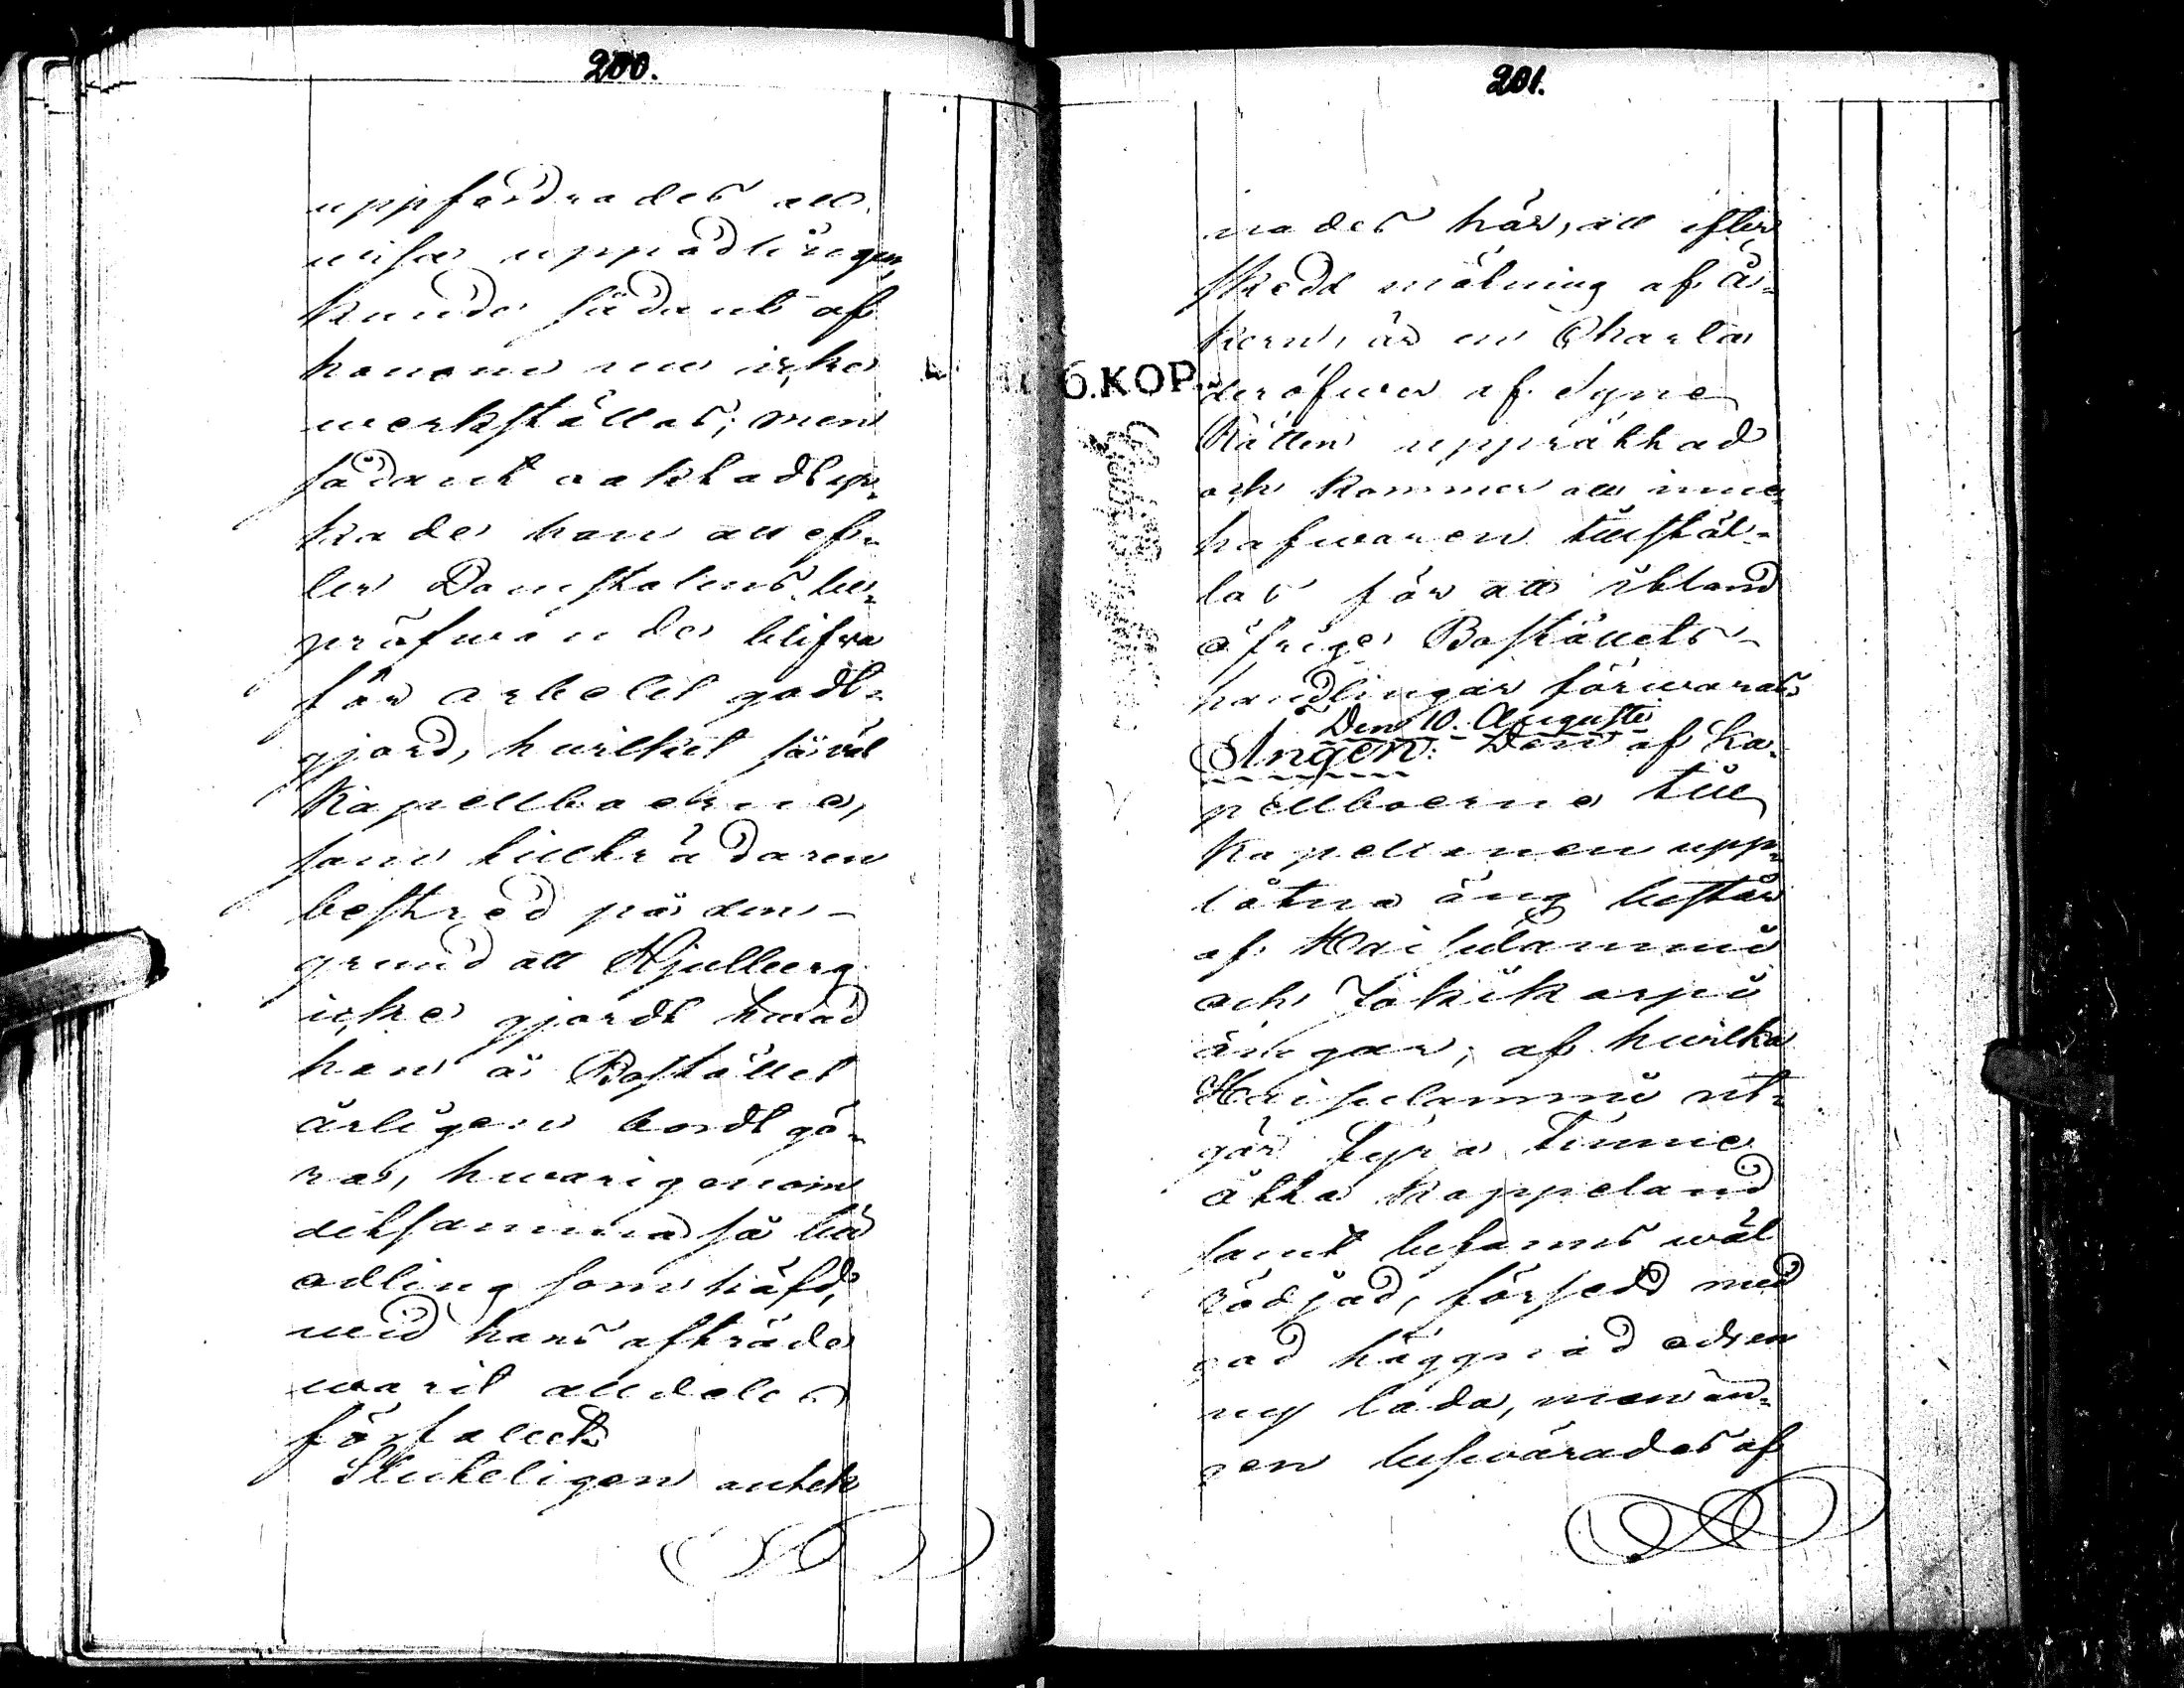 200.
uppfordrades att
wisa uppodlingen,
kunde sådant af
honom nu icke
werkställas; men
sådant oaktadt yr-
kade han att ef-
ter Domstolens be-
pröfwande blifwa
för arbetet godt-
gjord, hwilket såväl
Kapellboerne,
som tillträdaren
bestred på den
grund att Hjulberg
icke gjordt hwad
han å Bostället
årligen bordt gö-
ra, hwarigenom
detsamma så till
odling som häfd,
wid hans afträde
warit alldeles
förfallet.
Sluteligen anteck
201.
nades här, att efter
skedd mätning af å-
kern, är en Charta
deröfwer af Syne
Rätten upprättad
och kommer att inne-
hafwaren tillstäl-
las för att ibland
öfrige Boställets
handlingar förwaras.
Den 10. Augusti
Ängen: Den af Ka-
pellboerne till
Kapellanen upp-
låtna äng består
af Haisulammi
och Jokikorpi
ängar; af hwilka
Haisulammi ut-
gör fyra Tunne
åtta Kappeland
samt befanns wäl
rödjad, försedd med
god häggnad och en
ny lada, men än-
gen beswärades af
6.KOP.